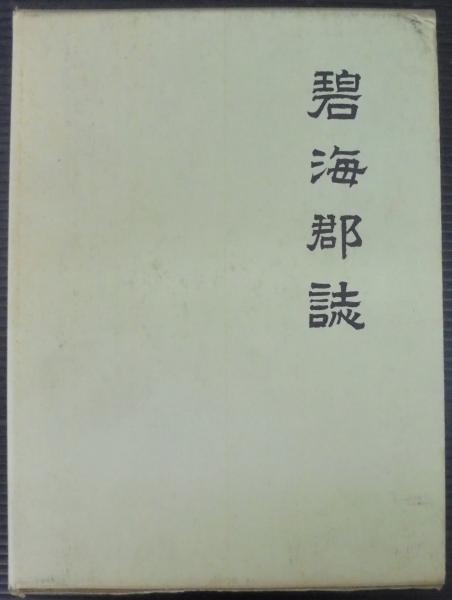 碧海郡誌